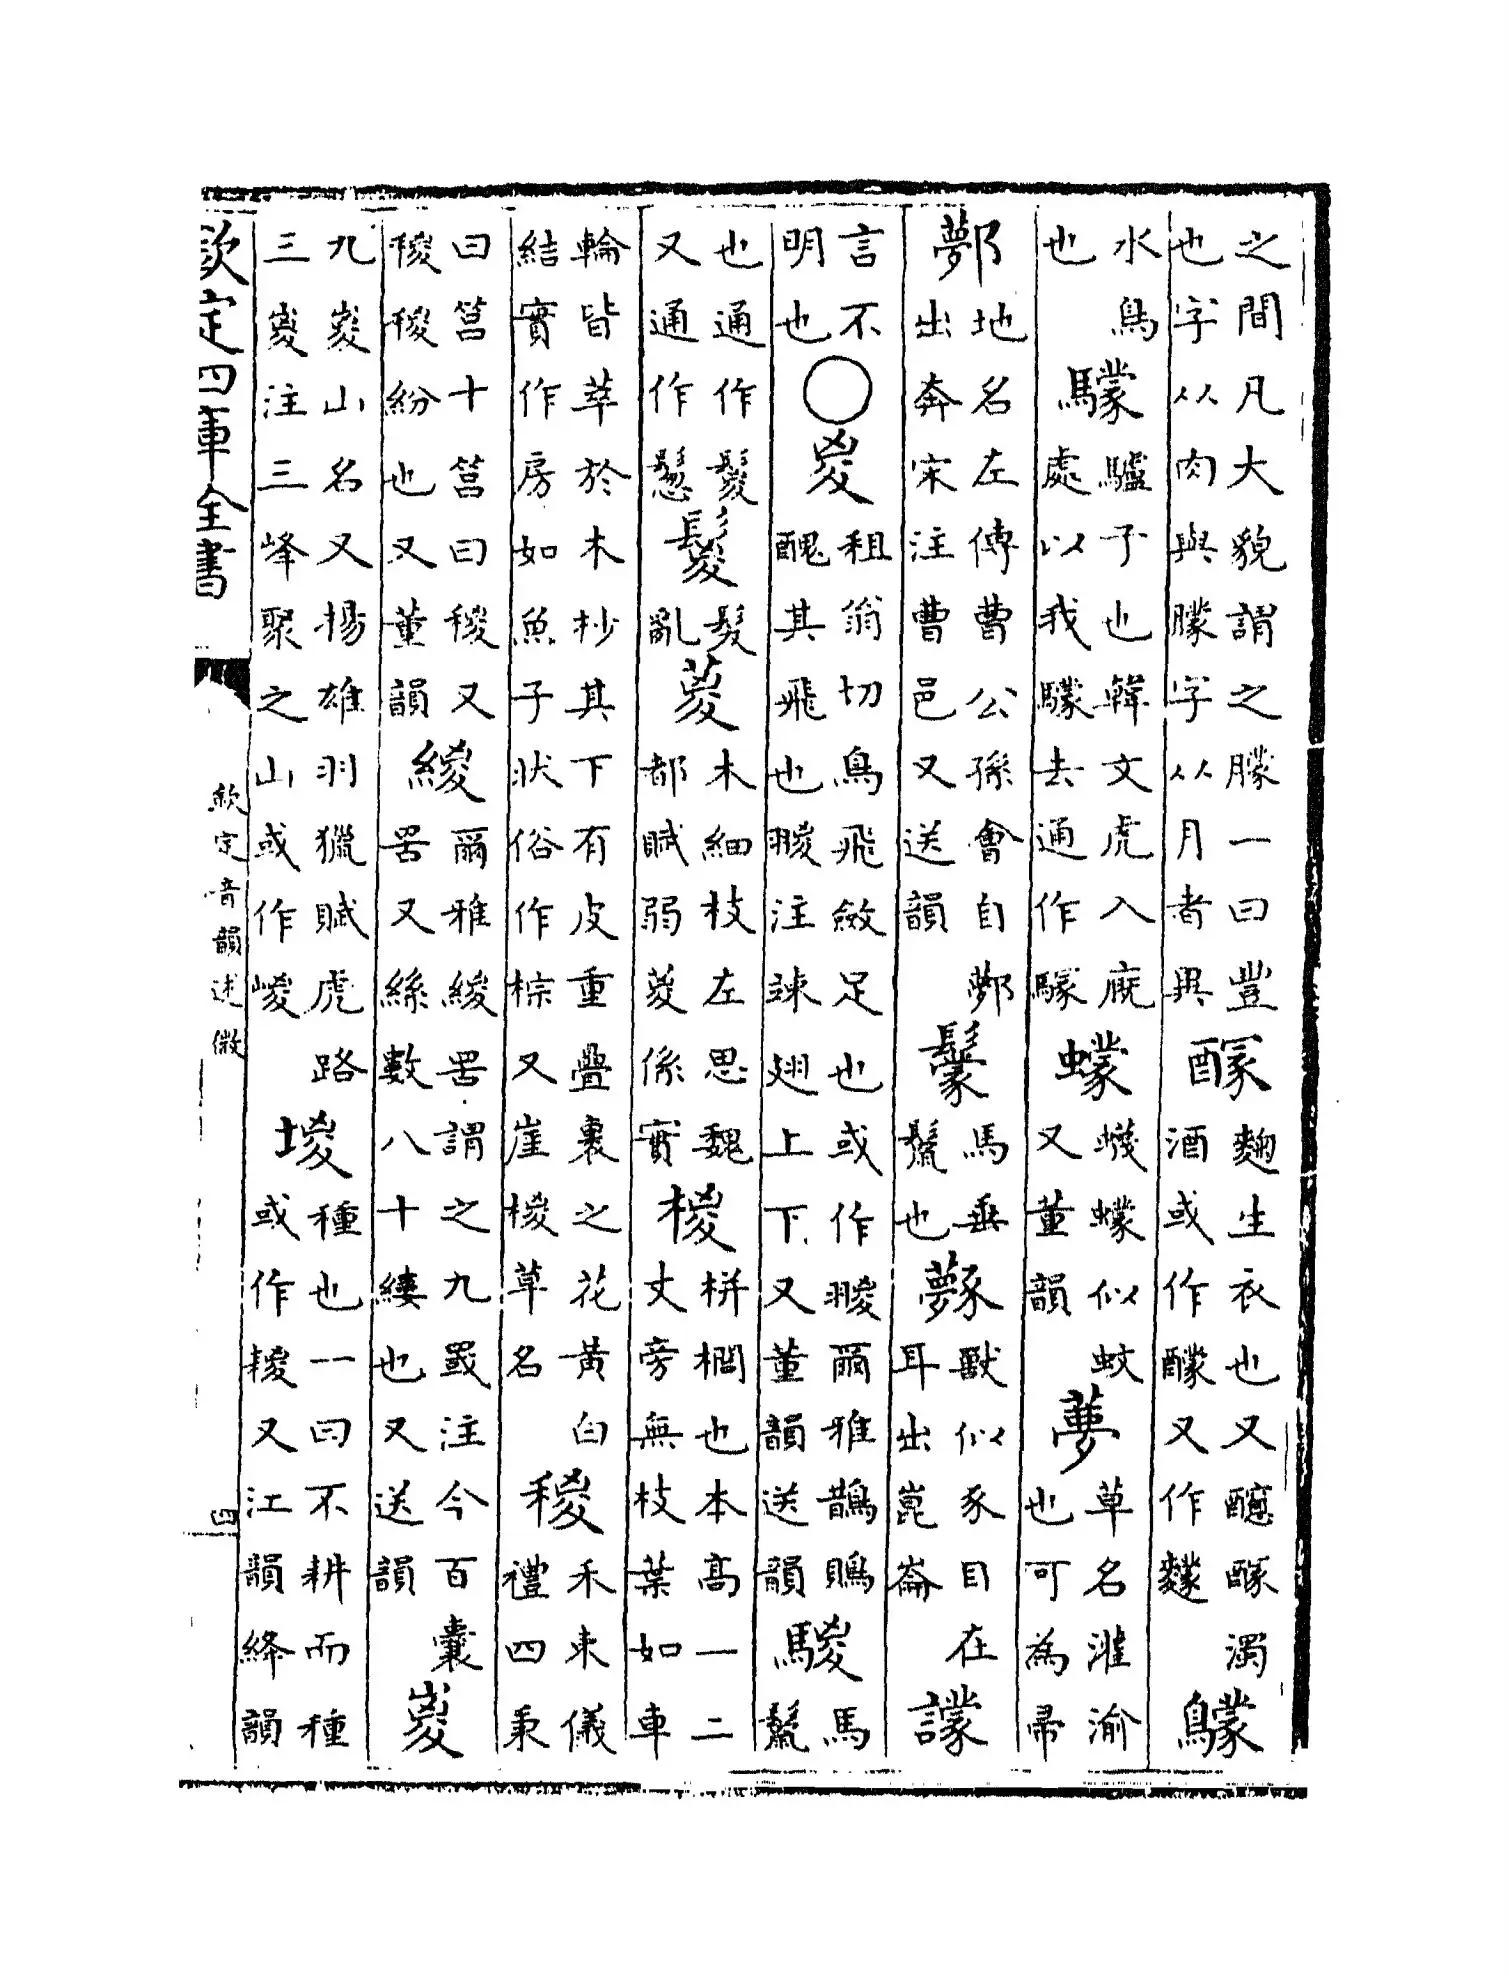 之間凡大貌謂之朦一曰豐也字从肉與朦字从月者異 麴生衣也又濁酒或作又作 鸏
水鳥也 驢子也韓文虎入廐處以我去通作 蠓蠛蠓似蚊又董韻 夢草名灌渝也可為帚
鄸地名左傳曹公孫會自鄸出奔宋注曹邑又送韻 馬垂鬣也 獸似豕目在耳出崑崙
言不明也○㚇租翁切鳥飛斂足也或作翪爾雅鵲鵙醜其飛也翪注竦翅上下又董韻送韻 騣馬鬣
也通作鬉又通作 鬉髮亂 葼木細枝左思魏都賦弱葼係實 椶栟櫚也本高一二丈旁無枝葉如車
輪皆萃於木杪其下有皮重疊裹之花黃白結實作房如魚子狀俗作棕又崖椶草名 稯禾束儀禮四秉
曰筥十筥曰稯又稯稯紛也又董韻 緵爾雅緵罟謂之九罭注今百囊罟又絲數八十縷也又送韻 嵏
九嵏山名又揚雄羽獵賦虎路三嵏注三峰聚之山或作嵕 堫種也一曰不耕而種或作又江韻絳韻
欽定四庫全書
欽定音韻述微
四